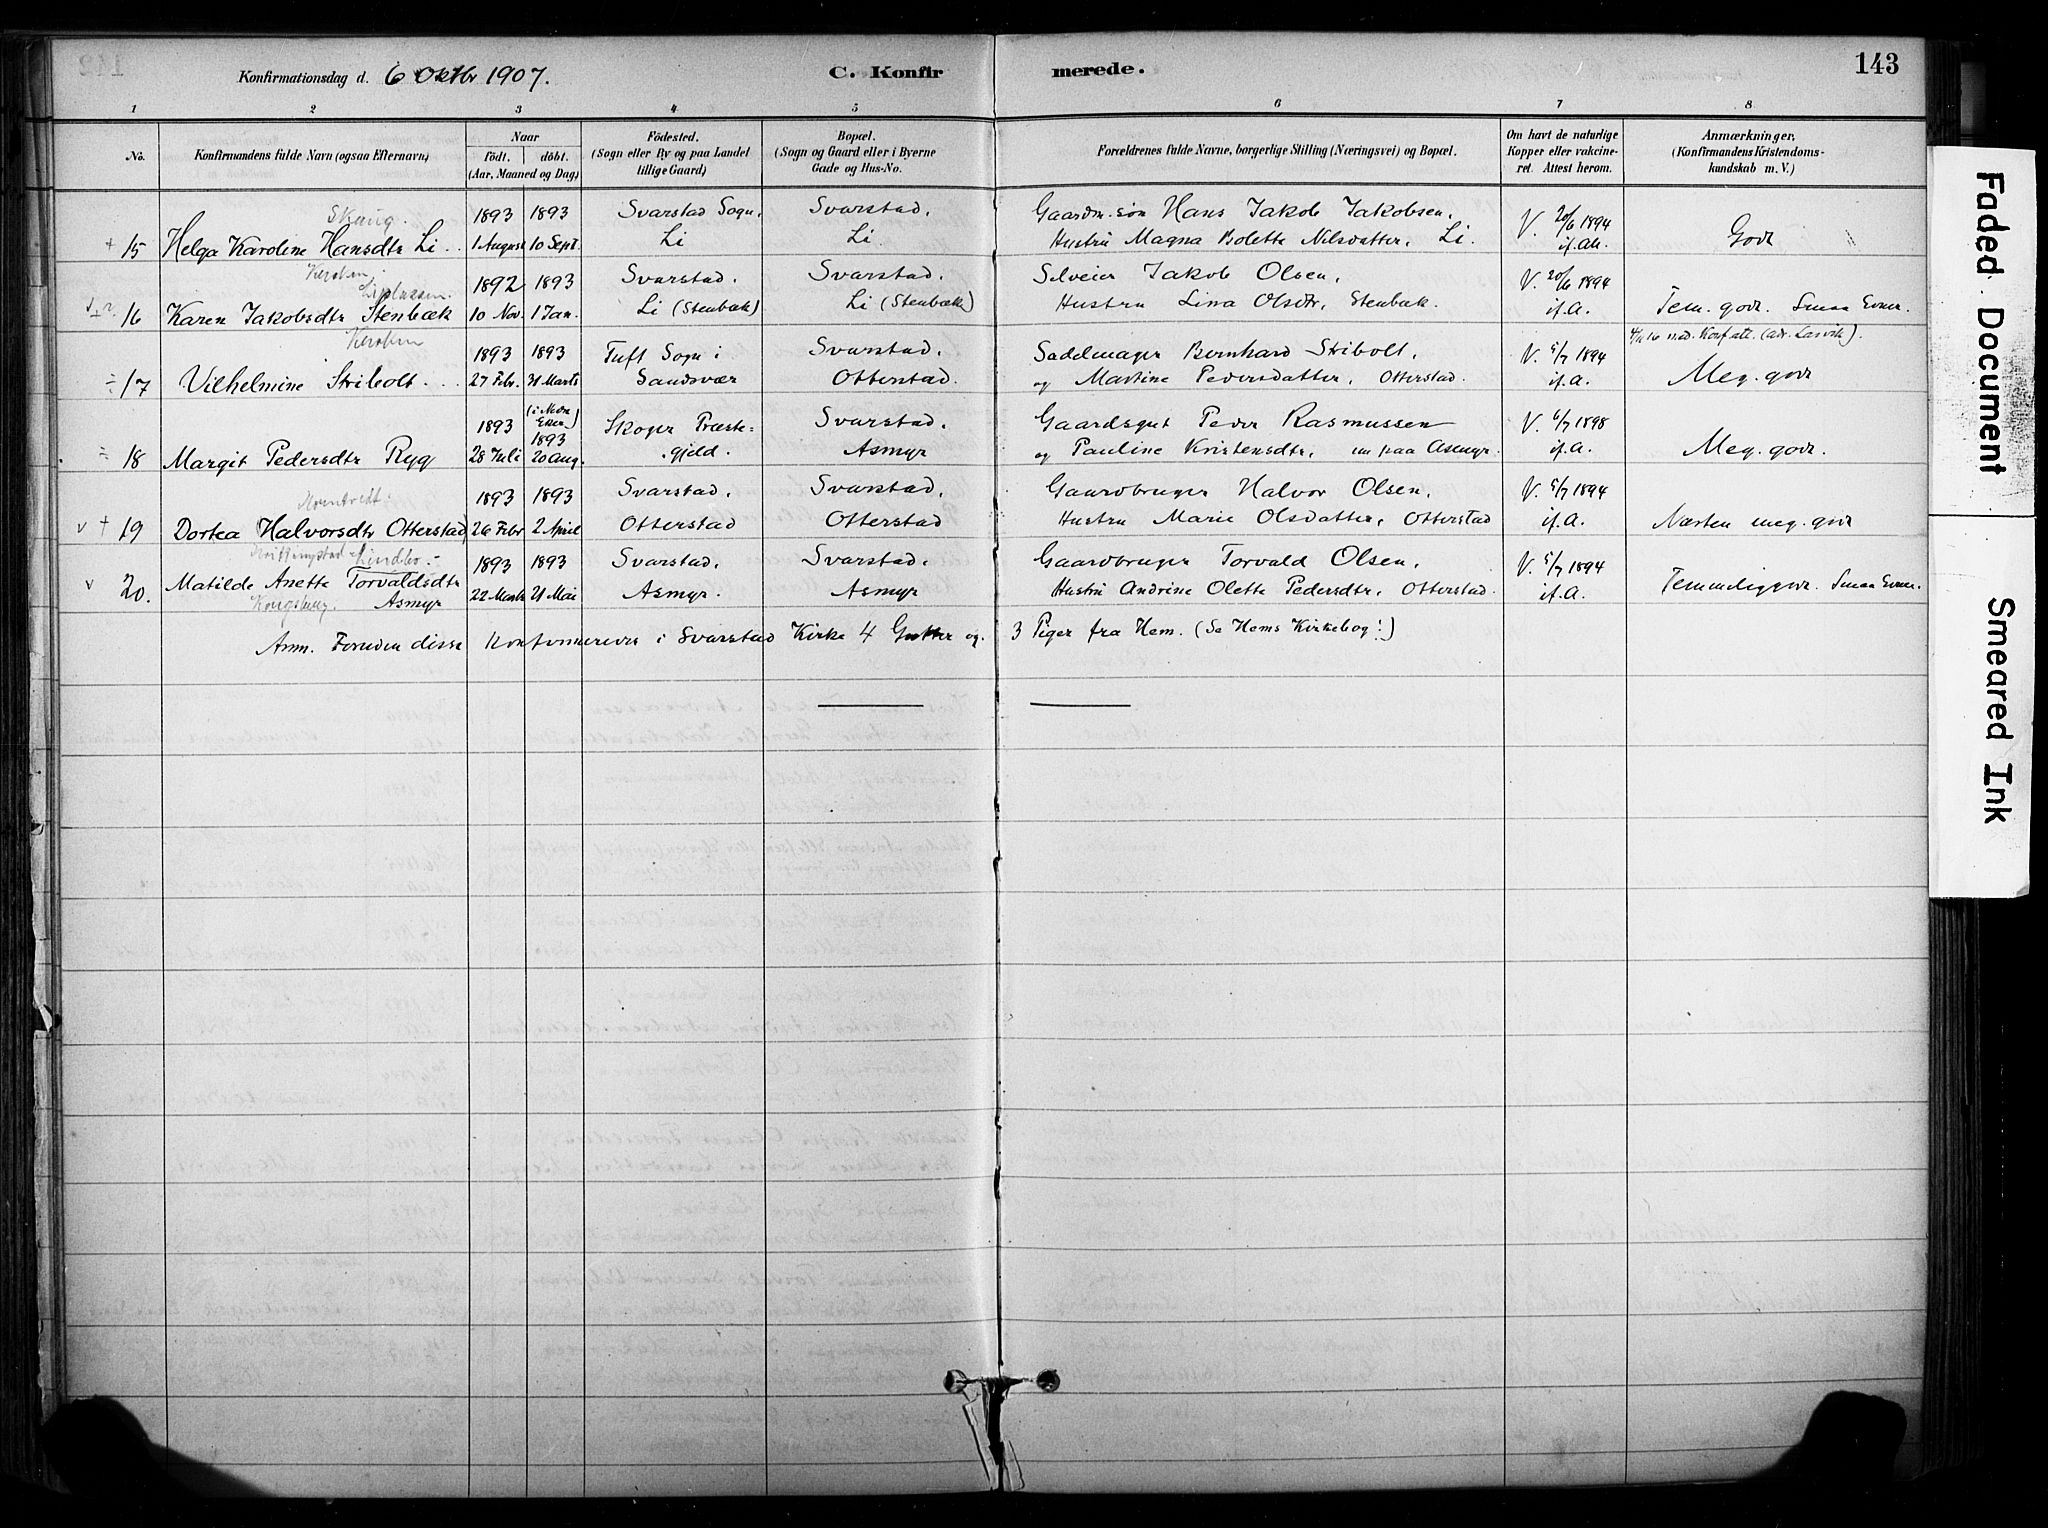 Konfirmationsdag d. 6 Oktbr 1907.
C. Konfirmerede.
143
1 2 3 4 5 6 7 8
No.
Konfirmandens fulde Navn (ogsaa Efternavn)
Naar
födt. döbt.
(Aar, Maaned og Dag)
Födested.
(Sogn eller By og paa Landet
tillige Gaard)
Bopæl.
(Sogn og Gaard eller i Byerne
Gade og Hus-No.
Forældrenes fulde Navne, borgerlige Stilling (Næringsvei) og Bopæl.
Om havt de naturlige
Kopper eller vakcine-
ret. Attest herom.
Anmærkninger.
(Konfirmandens Kristendoms-
kundskab m. V.)
Skaug.
1893 1893 Svarstad Sogn. Svarstad. Gaardm. søn Hans Jakob Jakobsen. V. 20/6 1894
+ 15 Helga Karoline Hansdtr Li. 1 August 10 Sept. Li Li. Hustru Magna Bolette Nilsdatter. Li. if. att. Godt
1892 1893 Svarstad. Svarstad. Selveier Jakob Olsen. V. 20/6 1894
16 Karen Jakobsdtr Stenbæk 10 Nov. 1 Jan. Li (Stenbæk) Li (Stenbæk) Hustru Lina Olsdtr, Stenbæk. if. A. Tem. godt. Smaa Evner.
1893 1893 Tuft Sogn i Svarstad. Sadelmager Bernhard Stribolt. V. 5/7 1894
÷ 17 Vilhelmine Stribolt. 27 Febr. 31 Marts Sandsvær Otterstad. og Martine Pedersdatter, Otterstad. if. A. Meg. godt
1893 1893 Skoger Præste= Svarstad. Gaardsgut Peder Rasmussen V. 6/7 1898
÷ 18 Margit Pedersdtr Ryg 28 Juli 20 Aug. gjeld. Asmyr og Pauline Kristensdtr, nu paa Asmyr. if. A. Meg. godt.
1893 1893 Svarstad. Svarstad. Gaardbruger Halvor Olsen. V. 5/7 1894
v + 19 Dortea Halvorsdtr Otterstad 26 Febr 2 April Otterstad Otterstad Hustru Marie Olsdatter, Otterstad if. A. Næsten meg. godt
Lindbo.
1893 1893 Svarstad. Svarstad. Gaardbruger Torvald Olsen. V. 5/7 1894
v 20. Matilde Anette Torvaldsdtr 22 Marts 21 Mai Asmyr. Asmyr Hustru Andrine Olette Pedersdtr. Otterstad. if. A. Temmelig godt. Smaa Evner.
Kongsberg. Asmyr
Anm. Foruden disse konfirmeredes i Svarstad Kirke 4 Gutter og 3 Piger fra Hem. (Se Hems Kirkebog!)
Faded Document
Smeared Ink